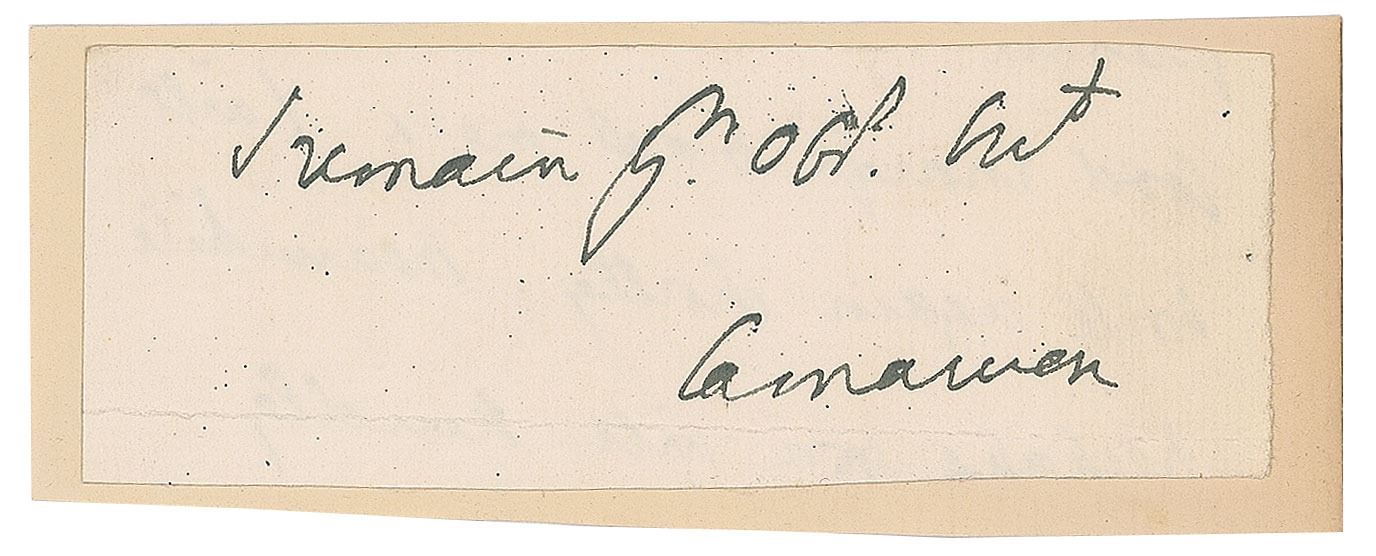 I remain yr. obt. svt
Carnarvon